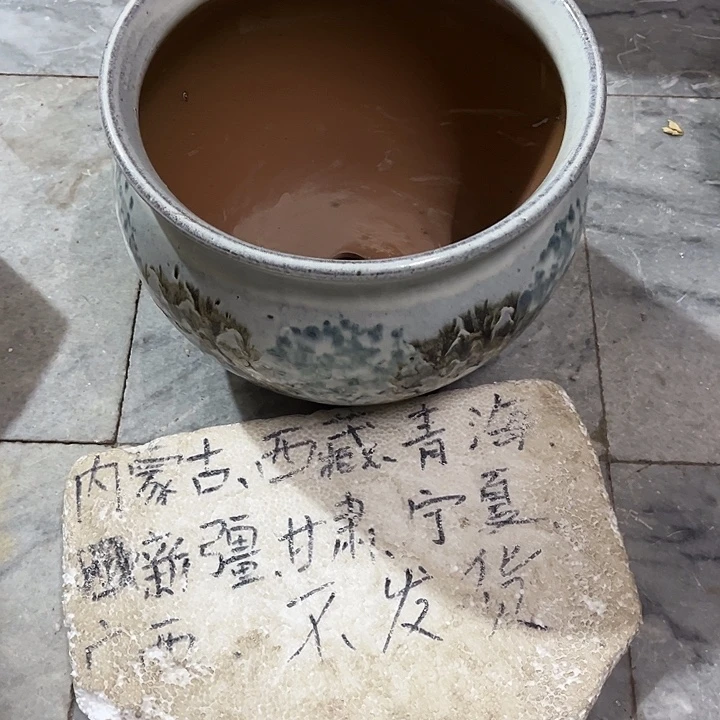 内蒙古、西藏、青海
新疆、甘肃、宁夏
广西 不发货